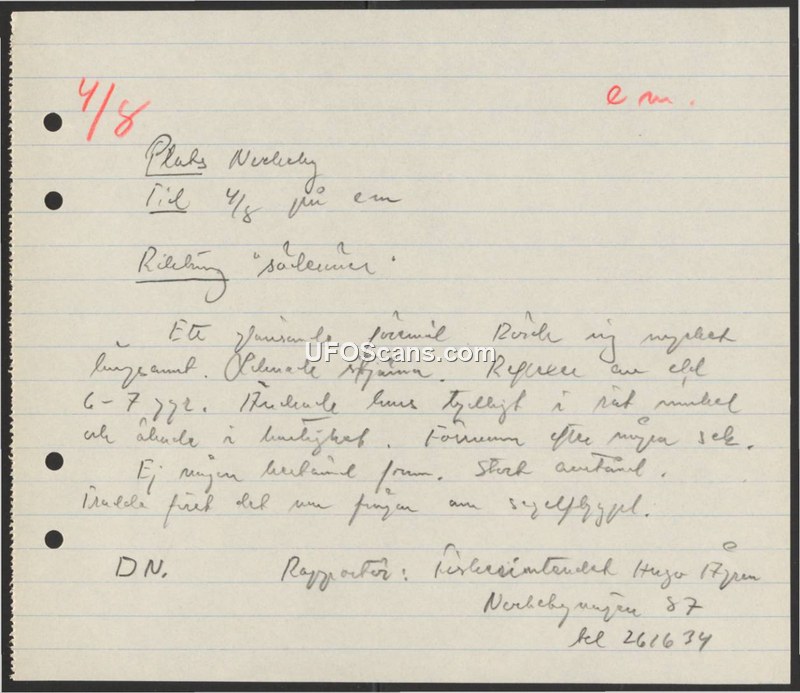 4/8 em.
Plats Norrby
Tid 4/8 på em
Riktning "söderut"
Ett glänsande föremål Rörde sig mycket
långsamt. Liknade stjärna. Reflexer av eld
6-7 ggr. Ändrade kurs tydligt i rät vinkel
och ökade i hastighet. Försvann efter några sek.
Ej någon bestämd form. Stort avstånd.
Trodde först det var frågan om segelflygpl.
DN. Rapportör: Hugo
87
tel 261634
UFOScans.com